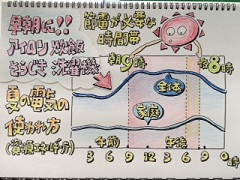 早朝に!!
アイロン 炊飯
そうじき 洗濯機
夏の電気の
使われ方
(資源エネルギー庁)
節電が必要な
時間帯
朝9時
夜8時
全体
家庭
午前
午後
3 6 9 12 3 6 9 0時